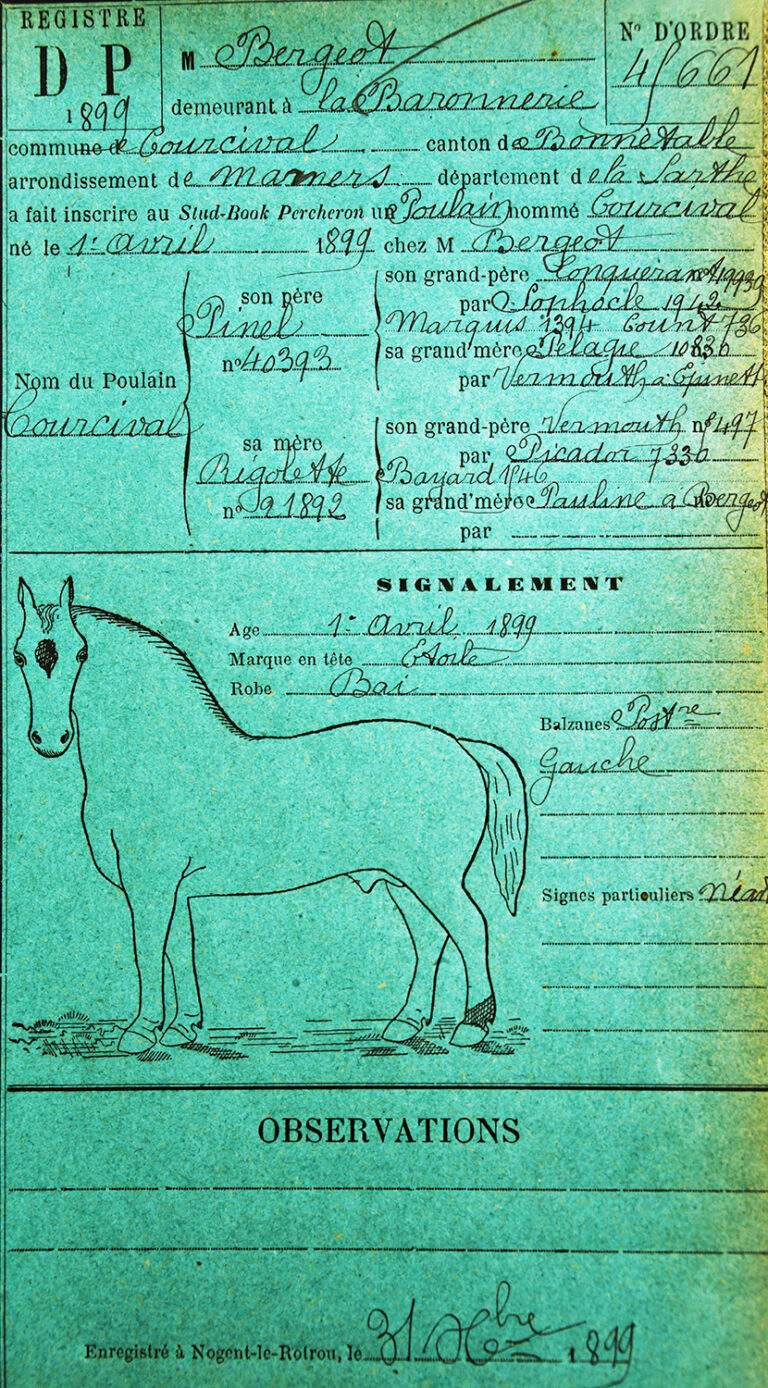 REGISTRE
D P
1899
M Bergeot
demeurant à la Baronnerie
N° D'ORDRE
45661
commune de Courcival canton de Bonnétable
arrondissement de Mamers département de la Sarthe
a fait inscrire au Stud-Book Percheron un Poulain nommé Courcival
né le 1er avril 1899 chez M Bergeot
Nom du Poulain
Courcival
son père
Pinel
n° 40393
son grand-père Conquerant n°
par Sophocle 1942
Marquis 1394 Count 736
sa grand'mère Pélagie 10830
par Vermouth à Epinett
sa mère
Rigolette
n° 21892
son grand-père Vermouth n° 8497
par Picador 7330
Bayard 1846
sa grand'mère Pauline à Bergeot
par
SIGNALEMENT
Age 1er Avril 1899
Marque en tête Etoile
Robe Bai
Balzanes Postre
Gauche
Signes particuliers Néan
OBSERVATIONS
Enregistré à Nogent-le-Rotrou, le 31 Xbre 1899